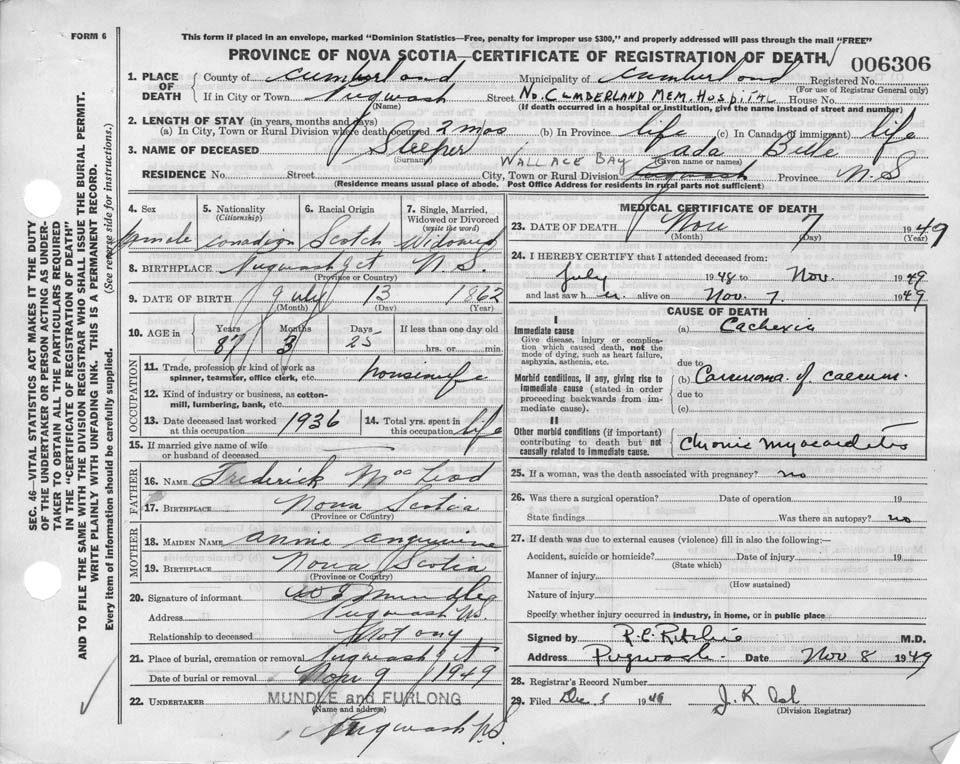 FORM 6
This form if placed in an envelope, marked "Dominion Statistics—Free, penalty for improper use $300," and properly addressed will pass through the mail "FREE"
PROVINCE OF NOVA SCOTIA—CERTIFICATE OF REGISTRATION OF DEATH
006306
1. PLACE OF DEATH County of Cumberland Municipality of Cumberland Registered No.
(For use of Registrar General only)
If in City or Town Pugwash Street No. CUMBERLAND MEM. HOSPITAL House No.
(Name) (If death occurred in a hospital or institution, give the name instead of street and number)
2. LENGTH OF STAY (in years, months and days)
(a) In City, Town or Rural Division where death occurred 2 mos (b) In Province life (c) In Canada (if immigrant) life
3. NAME OF DECEASED Sleeper Ada Belle
(Surname) (Given name or names)
WALLACE BAY
RESIDENCE No. Street City, Town or Rural Division Pugwash Province N.S
(Residence means usual place of abode. Post Office Address for residents in rural parts not sufficient)
4. Sex 5. Nationality (Citizenship) 6. Racial Origin 7. Single, Married, Widowed or Divorced (write the word)
Female Canadian Scotch Widowed
8. BIRTHPLACE Pugwash Jct N.S.
(Province or Country)
9. DATE OF BIRTH July 13 1862
(Month) (Day) (Year)
10. AGE in Years Months Days If less than one day old
87 3 25 hrs. or min.
11. Trade, profession or kind of work as spinner, teamster, office clerk, etc. housewife
12. Kind of industry or business, as cotton-mill, lumbering, bank, etc.
OCCUPATION
13. Date deceased last worked at this occupation 1936 14. Total yrs. spent in this occupation life
15. If married give name of wife or husband of deceased
FATHER
16. NAME Frederick McLeod
17. BIRTHPLACE Nova Scotia
(Province or Country)
MOTHER
18. MAIDEN NAME Annie
19. BIRTHPLACE Nova Scotia
(Province or Country)
20. Signature of informant
Address Pugwash N.S.
Relationship to deceased Not any
21. Place of burial, cremation or removal Pugwash Jct
Date of burial or removal Nov 9 1949
22. UNDERTAKER MUNDLE and FURLONG
(Name and address)
Pugwash N.S.
MEDICAL CERTIFICATE OF DEATH
23. DATE OF DEATH Nov 7 1949
(Month) (Day) (Year)
24. I HEREBY CERTIFY that I attended deceased from:
July 1948 to Nov. 1949
and last saw her alive on Nov 7. 1949
CAUSE OF DEATH
I
Immediate cause (a) Cachexia
Give disease, injury or complication which caused death, not the mode of dying, such as heart failure, asphyxia, asthenia, etc.
due to
Morbid conditions, if any, giving rise to immediate cause (stated in order proceeding backwards from immediate cause). (b) Carcinoma of caecum.
due to
(c)
II
Other morbid conditions (if important) contributing to death but not causally related to immediate cause. Chronic myocarditis
25. If a woman, was the death associated with pregnancy? no
26. Was there a surgical operation? Date of operation 19
State findings Was there an autopsy? no
27. If death was due to external causes (violence) fill in also the following:—
Accident, suicide or homicide? Date of injury 19
(State which)
Manner of injury
(How sustained)
Nature of injury
Specify whether injury occurred in industry, in home, or in public place
Signed by R.C. Ritchie M.D.
Address Pugwash. Date Nov 8 1949
28. Registrar's Record Number
29. Filed Dec 5 1949 J. R.
(Division Registrar)
SEC. 46—VITAL STATISTICS ACT MAKES IT THE DUTY
OF THE UNDERTAKER OR PERSON ACTING AS UNDERTAKER TO OBTAIN ALL THE PARTICULARS REQUIRED
IN THE "CERTIFICATE OF REGISTRATION OF DEATH"
AND TO FILE THE SAME WITH THE DIVISION REGISTRAR WHO SHALL ISSUE THE BURIAL PERMIT.
WRITE PLAINLY WITH UNFADING INK. THIS IS A PERMANENT RECORD.
Every item of information should be carefully supplied. (See reverse side for instructions.)